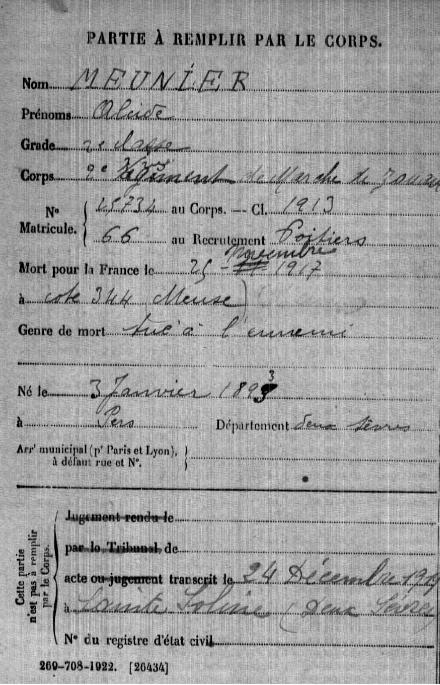 PARTIE À REMPLIR PAR LE CORPS.
Nom MEUNIER
Prénoms Alcide
Grade 2e classe
Corps 9e régiment de Marche de Zouaves
N° Matricule. { 25734 au Corps. — Cl. 1913
66 au Recrutement Poitiers
Mort pour la France le 25 novembre 1917
à cote 344 Meuse
Genre de mort tué à l'ennemi
Né le 3 Janvier 1893
à Pers Département deux sèvres
Arrt municipal (pr Paris et Lyon), à défaut rue et N°.
Cette partie n'est pas à remplir par le Corps.
Jugement rendu le
par le Tribunal de
acte ou jugement transcrit le 24 Décembre 1919
à Sainte Soline (Deux Sèvres
N° du registre d'état civil
269-708-1922. [26434]